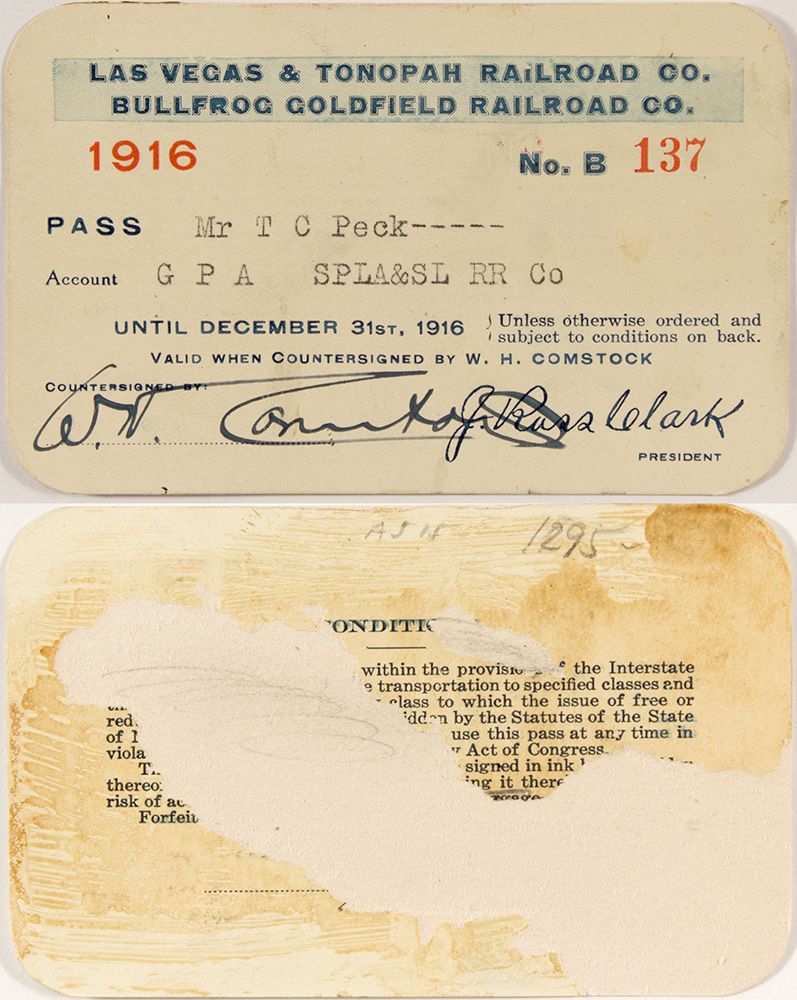 LAS VEGAS & TONOPAH RAILROAD CO.
BULLFROG GOLDFIELD RAILROAD CO.
1916 No. B 137
PASS Mr T C Peck-----
Account G P A SPLA&SL RR Co
UNTIL DECEMBER 31ST, 1916 Unless otherwise ordered and
subject to conditions on back.
VALID WHEN COUNTERSIGNED BY W. H. COMSTOCK
COUNTERSIGNED BY:
W. H. Comstock J. Ross Clark
PRESIDENT
A S 15 1295-
CONDITI
within the the Interstate
transportation to specified classes and
class to which the issue of free or
red by the Statutes of the State
of use this pass at any time in
viola Act of Congress.
signed in ink
thereo ing it there
risk of
Forfeit